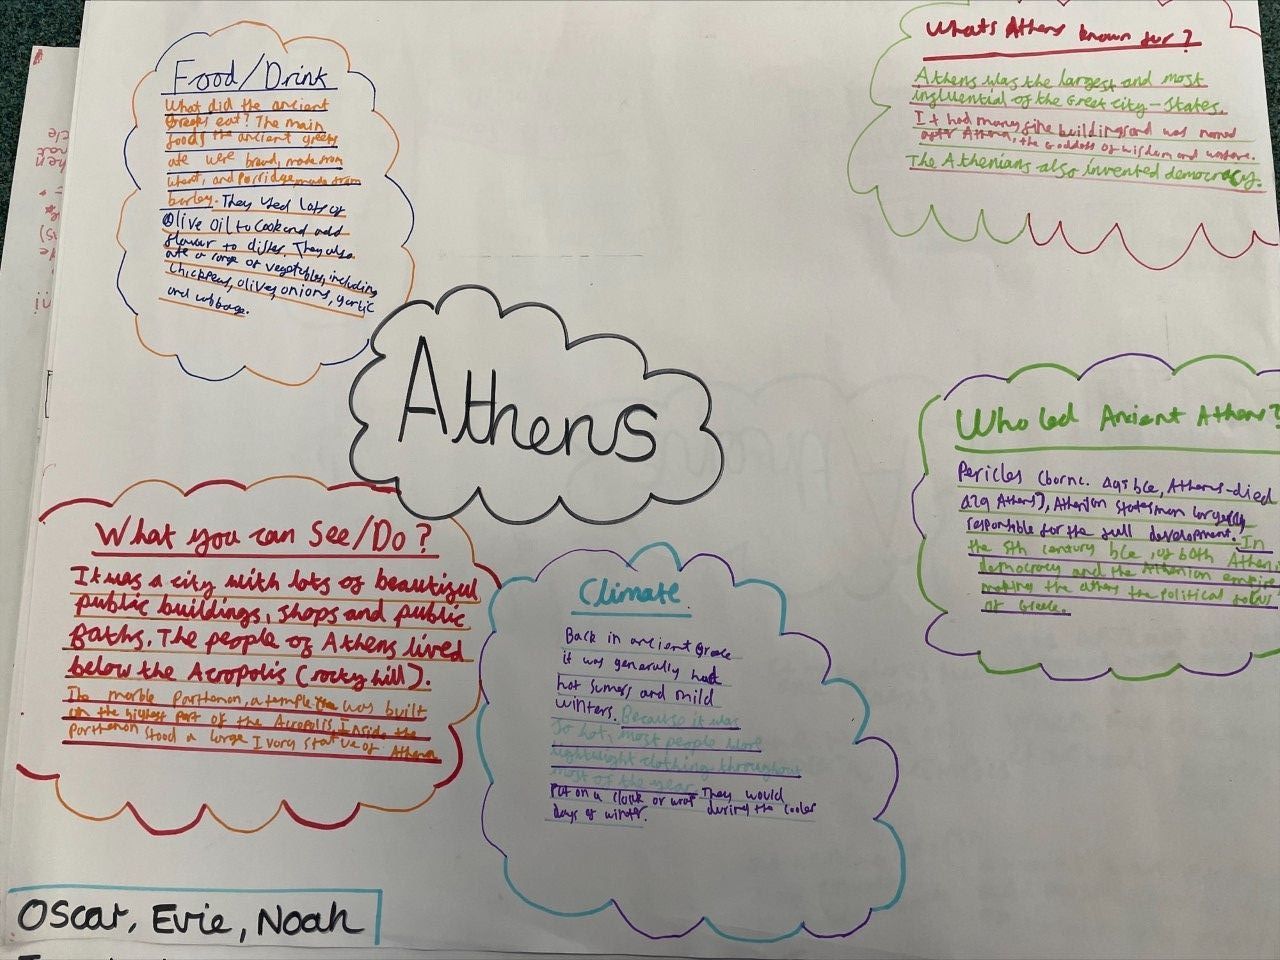 Food/Drink
What did the ancient
Greeks eat? The main
foods the ancient greeks
ate were bread, made from
wheat, and Porridge, made from
barley. They used lots of
Olive Oil to Cook and add
flavour to dishes. They also
ate a range of vegetables, including
chickpeas, olives, onions, garlic
and cabbage.
Whats Athens known for?
Athens was the largest and most
influential of the Greek city-States.
It had many fine buildings and was named
after Athena, the goddess of wisdom and warfare.
The Athenians also invented democracy.
Athens
Who led Ancient Athens?
Pericles (born c. 495 bce, Athens-died
429 Athens), Athenian statesman largely
responsible for the full development. In
the 5th century bce, of both Athenian
democracy and the Athenian empire
making the athens the political focus
of Greece.
What you can See/Do?
It was a city with lots of beautiful
public buildings, shops and public
Baths. The people of Athens lived
below the Acropolis (rocky hill).
The marble Parthenon, a temple was built
on the highest part of the Acropolis. Inside the
Parthenon stood a large Ivory statue of Athena
Climate
Back in ancient Greece
it was generally had
hot sumers and mild
winters. Because it was
So hot, most people wore
lightwight clothing throughout
most of the year. They would
Put on a cloak or wrap during the cooler
days of winter.
Oscar, Evie, Noah